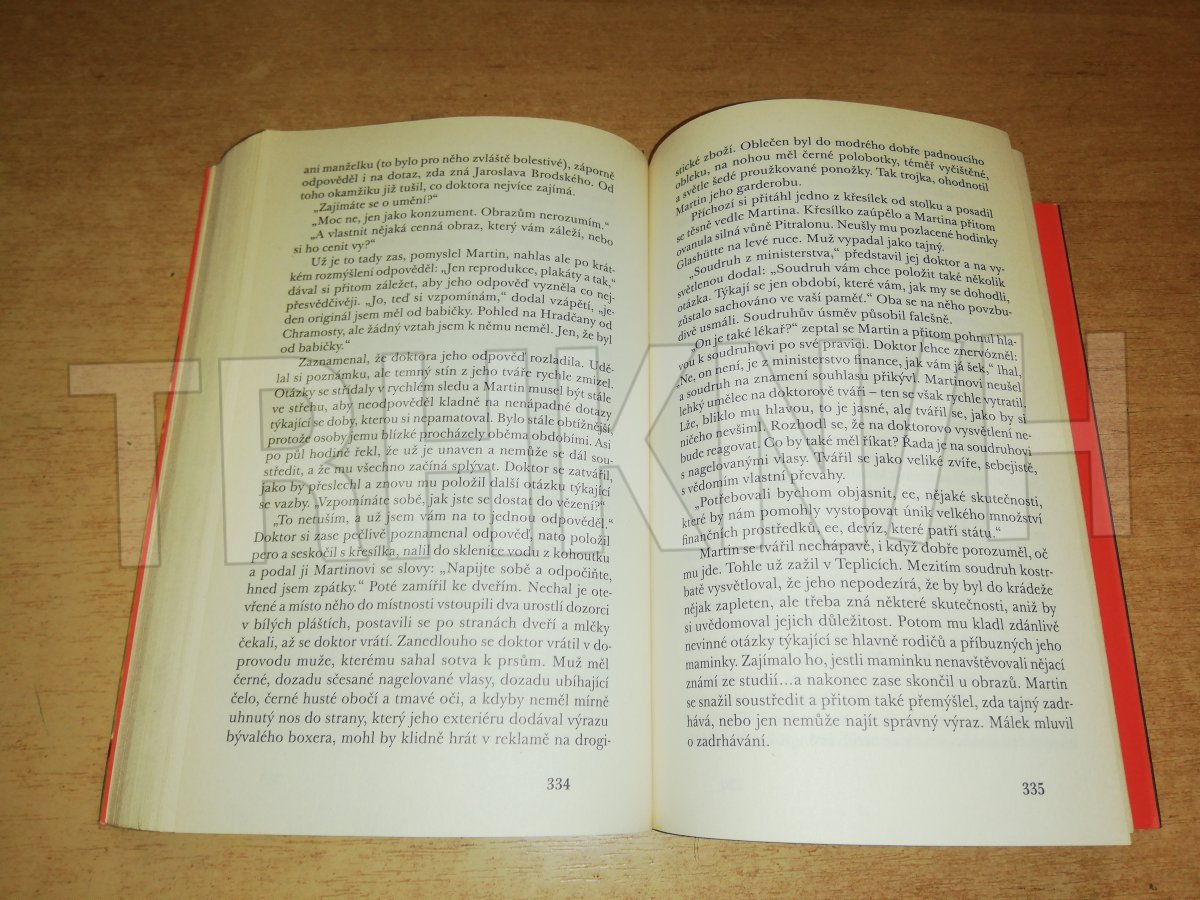 ani manželku (to bylo pro něho zvláště bolestivé), záporně
odpověděl i na dotaz, zda zná Jaroslava Brodského. Od
toho okamžiku již tušil, co doktora nejvíce zajímá.
„Zajímáte se o umění?“
„Moc ne, jen jako konzument. Obrazům nerozumím.“
„A vlastnit nějaká cenná obraz, který vám záleží, nebo
si ho cenit vy?“
Už je to tady zas, pomyslel Martin, nahlas ale po krát-
kém rozmýšlení odpověděl: „Jen reprodukce, plakáty a tak,“
dával si přitom záležet, aby jeho odpověď vyzněla co nej-
přesvědčivěji. „Jo, teď si vzpomínám,“ dodal vzápětí, „je-
den originál jsem měl od babičky. Pohled na Hradčany od
Chramosty, ale žádný vztah jsem k němu neměl. Jen, že byl
od babičky.“
Zaznamenal, že doktora jeho odpověď rozladila. Udě-
lal si poznámku, ale temný stín z jeho tváře rychle zmizel.
Otázky se střídaly v rychlém sledu a Martin musel být stále
ve střehu, aby neodpověděl kladně na nenápadné dotazy
týkající se doby, kterou si nepamatoval. Bylo stále obtížnější,
protože osoby jemu blízké procházely oběma obdobími. Asi
po půl hodině řekl, že už je unaven a nemůže se dál sou-
středit, a že mu všechno začíná splývat. Doktor se zatvářil,
jako by přeslechl a znovu mu položil další otázku týkající
se vazby. „Vzpomínáte sobě, jak jste se dostat do vězení?“
„To netuším, a už jsem vám na to jednou odpověděl.“
Doktor si zase pečlivě poznamenal odpověď, nato položil
pero a seskočil s křesílka, nalil do sklenice vodu z kohoutku
a podal ji Martinovi se slovy: „Napijte sobě a odpočiňte,
hned jsem zpátky.“ Poté zamířil ke dveřím. Nechal je ote-
vřené a místo něho do místnosti vstoupili dva urostlí dozorci
v bílých pláštích, postavili se po stranách dveří a mlčky
čekali, až se doktor vrátí. Zanedlouho se doktor vrátil v do-
provodu muže, kterému sahal sotva k prsům. Muž měl
černé, dozadu sčesané nagelované vlasy, dozadu ubíhající
čelo, černé husté obočí a tmavé oči, a kdyby neměl mírně
uhnutý nos do strany, který jeho exteriéru dodával výrazu
bývalého boxera, mohl by klidně hrát v reklamě na drogi-
334
stické zboží. Oblečen byl do modrého dobře padnoucího
obleku, na nohou měl černé polobotky, téměř vyčištěné,
a světle šedé proužkované ponožky. Tak trojka, ohodnotil
Martin jeho garderobu.
Příchozí si přitáhl jedno z křesílek od stolku a posadil
se těsně vedle Martina. Křesílko zaúpělo a Martina přitom
ovanula silná vůně Pitralonu. Neušly mu pozlacené hodinky
Glashütte na levé ruce. Muž vypadal jako tajný.
„Soudruh z ministerstva,“ představil jej doktor a na vy-
světlenou dodal: „Soudruh vám chce položit také několik
otázka. Týkají se jen období, které vám, jak my se dohodli,
zůstalo sachováno ve vaší paměť.“ Oba se na něho povzbu-
divě usmáli. Soudruhův úsměv působil falešně.
„On je také lékař?“ zeptal se Martin a přitom pohnul hla-
vou k soudruhovi po své pravici. Doktor lehce znervózněl:
„Ne, on není, je z ministerstvo finance, jak vám já šek,“ lhal,
a soudruh na znamení souhlasu přikývl. Martinovi neušel
lehký umělec na doktorově tváři – ten se však rychle vytratil.
Lže, bliklo mu hlavou, to je jasné, ale tvářil se, jako by si
ničeho nevšiml. Rozhodl se, že na doktorovo vysvětlení ne-
bude reagovat. Co by také měl říkat? Řada je na soudruhovi
s nagelovanými vlasy. Tvářil se jako veliké zvíře, sebejistě,
s vědomím vlastní převahy.
„Potřebovali bychom objasnit, ee, nějaké skutečnosti,
které by nám pomohly vystopovat únik velkého množství
finančních prostředků, ee, devíz, které patří státu.“
Martin se tvářil nechápavě, i když dobře porozuměl, oč
mu jde. Tohle už zažil v Teplicích. Mezitím soudruh kostr-
batě vysvětloval, že jeho nepodezírá, že by byl do krádeže
nějak zapleten, ale třeba zná některé skutečnosti, aniž by
si uvědomoval jejich důležitost. Potom mu kladl zdánlivě
nevinné otázky týkající se hlavně rodičů a příbuzných jeho
maminky. Zajímalo ho, jestli maminku nenavštěvovali nějací
známí ze studií…a nakonec zase skončil u obrazů. Martin
se snažil soustředit a přitom také přemýšlel, zda tajný zadr-
hává, nebo jen nemůže najít správný výraz. Málek mluvil
o zadrhávání.
335
TRIKNIH